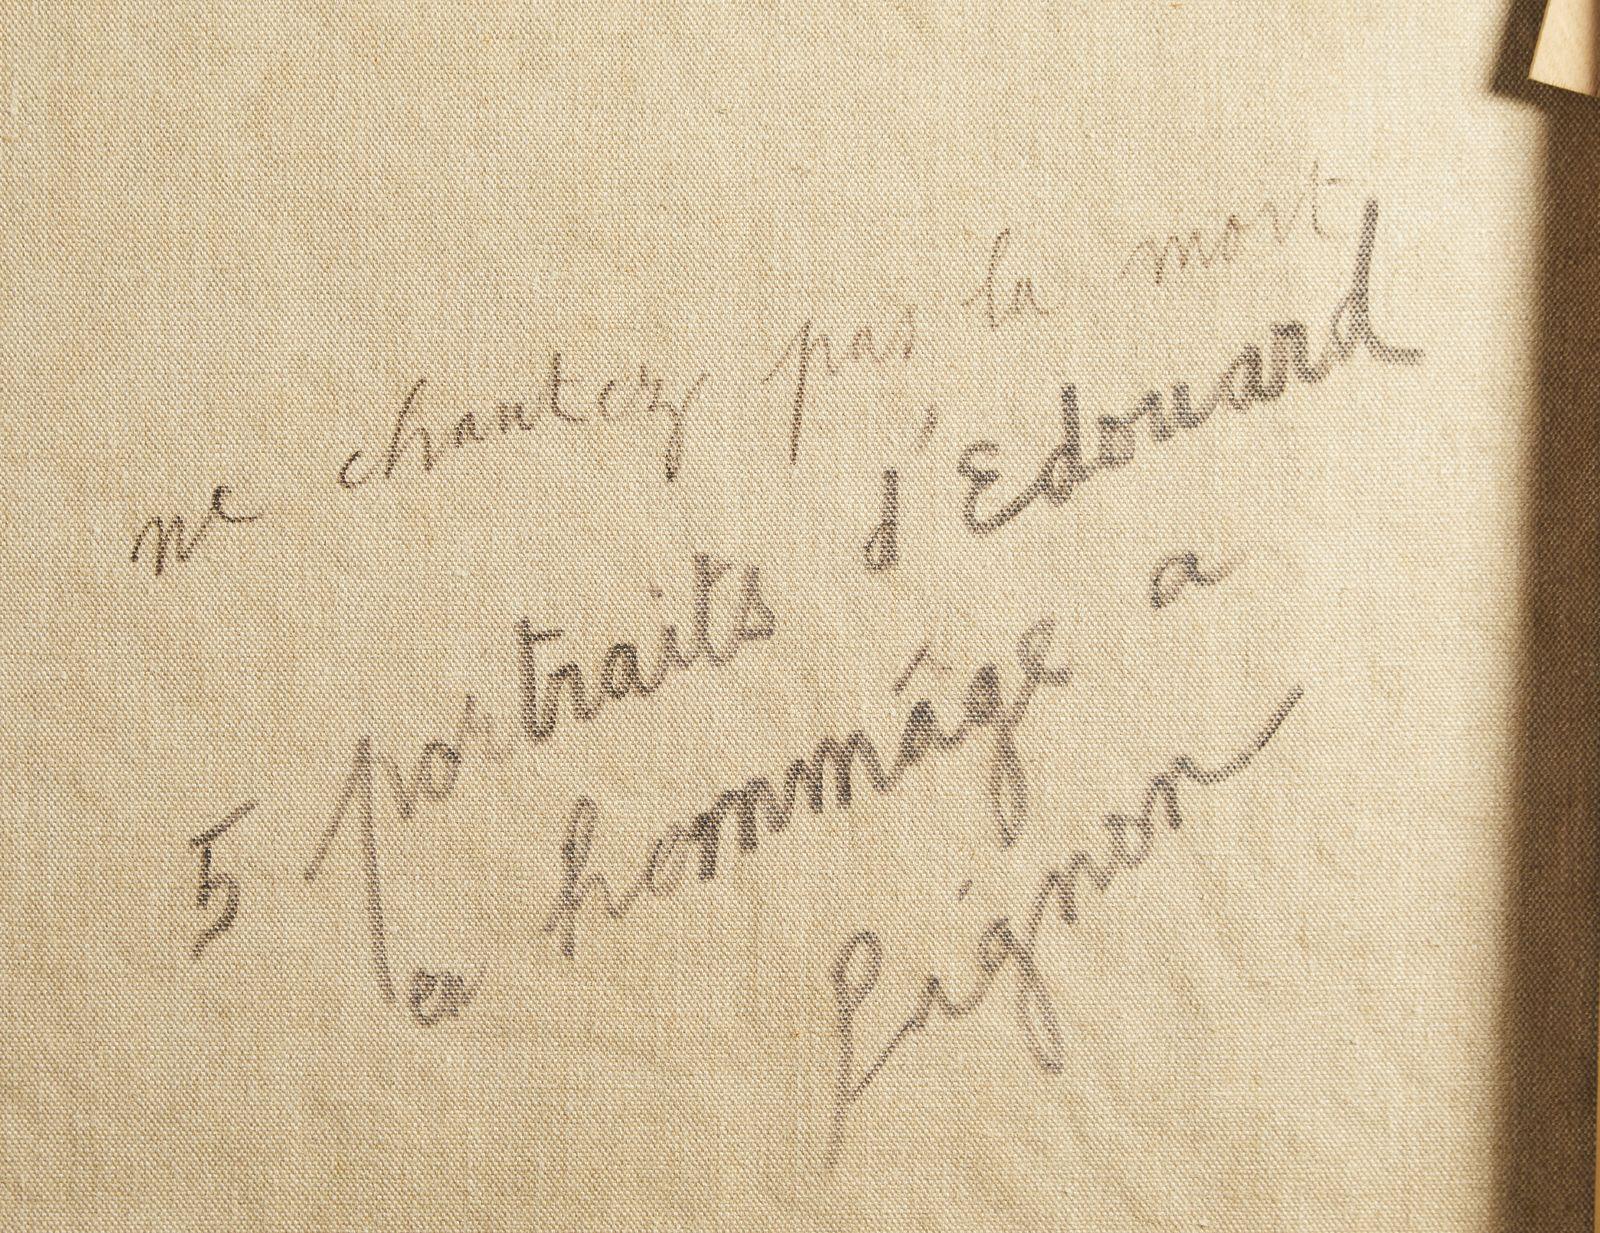 ne chantez pas la mort
5 portraits d'Edouard
en hommage a
Pignon